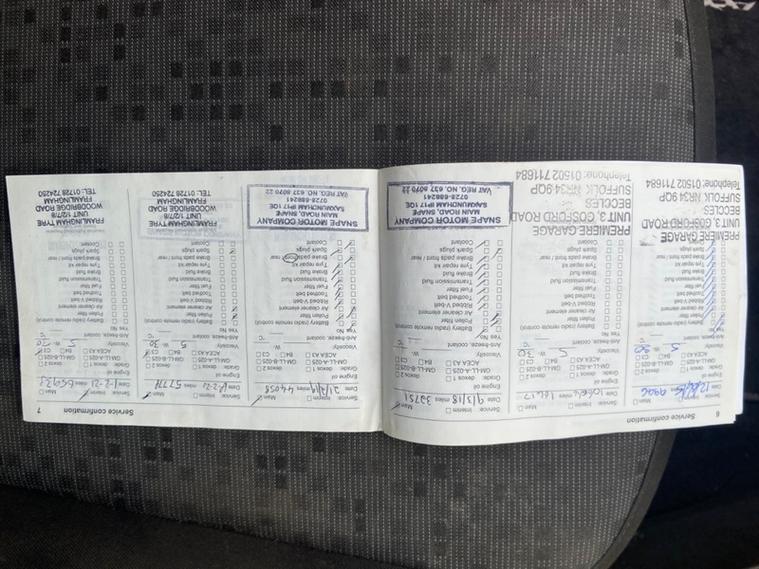 6
Service confirmation
Service: Interim Main
Date miles 9996
Engine oil
Grade: 2 dexos 2
1 dexos 1
GM-LL-B-025
GM-LL-A-025
ACEA A3 B4 C3
Viscosity: 5 W- 30
Anti-freeze, coolant °C
Yes No
Battery (radio remote control)
Pollen filter
Air cleaner element
Ribbed V-belt
Toothed belt
Fuel filter
Transmission fluid
Brake fluid
Tyre repair kit
Brake pads front / rear
Spark plugs
Coolant
PREMIERE GARAGE
UNIT 3, GOSFORD ROAD
BECCLES
SUFFOLK NR34 9QP
Telephone: 01502 711684
Service: Interim Main
Date miles
Engine oil
Grade: 2 dexos 2
1 dexos 1
GM-LL-B-025
GM-LL-A-025
ACEA A3 B4 C3
Viscosity: 5 W-
Anti-freeze, coolant °C
Yes No
Battery (radio remote control)
Pollen filter
Air cleaner element
Ribbed V-belt
Toothed belt
Fuel filter
Transmission fluid
Brake fluid
Tyre repair kit
Brake pads front / rear
Spark plugs
Coolant
PREMIERE GARAGE
UNIT 3, GOSFORD ROAD
BECCLES
SUFFOLK NR34 9QP
Telephone: 01502 711684
Service: Interim Main
Date 9/3/18 miles 32751
Engine oil
Grade: 2 dexos 2
1 dexos 1
GM-LL-B-025
GM-LL-A-025
ACEA A3 B4 C3
Viscosity: W-
Anti-freeze, coolant °C
Yes No
Battery (radio remote control)
Pollen filter
Air cleaner element
Ribbed V-belt
Toothed belt
Fuel filter
Transmission fluid
Brake fluid
Tyre repair kit
Brake pads front / rear
Spark plugs
Coolant
SNAPE MOTOR COMPANY
MAIN ROAD, SNAPE
SAXMUNDHAM IP17 1QE
0728 688241
VAT REG. NO. 637 8070 22
Service confirmation
7
Service: Interim Main
Date miles 44058
Engine oil
Grade: 2 dexos 2
1 dexos 1
GM-LL-B-025
GM-LL-A-025
ACEA A3 B4 C3
Viscosity: W-
Anti-freeze, coolant °C
Yes No
Battery (radio remote control)
Pollen filter
Air cleaner element
Ribbed V-belt
Toothed belt
Fuel filter
Transmission fluid
Brake fluid
Tyre repair kit
Brake pads front / rear
Spark plugs
Coolant
SNAPE MOTOR COMPANY
MAIN ROAD, SNAPE
SAXMUNDHAM IP17 1QE
0728 688241
VAT REG. NO. 637 8070 22
Service: Interim Main
Date miles
Engine oil
Grade: 2 dexos 2
1 dexos 1
GM-LL-B-025
GM-LL-A-025
ACEA A3 B4 C3
Viscosity: 5 W- 30
Anti-freeze, coolant °C
Yes No
Battery (radio remote control)
Pollen filter
Air cleaner element
Ribbed V-belt
Toothed belt
Fuel filter
Transmission fluid
Brake fluid
Tyre repair kit
Brake pads front / rear
Spark plugs
Coolant
FRAMLINGHAM TYRE
UNIT 1/2/7/8
WOODBRIDGE ROAD
FRAMLINGHAM
TEL: 01728 724250
Service: Interim Main
Date miles
Engine oil
Grade: 2 dexos 2
1 dexos 1
GM-LL-B-025
GM-LL-A-025
ACEA A3 B4 C3
Viscosity: 5 W- 30
Anti-freeze, coolant °C
Yes No
Battery (radio remote control)
Pollen filter
Air cleaner element
Ribbed V-belt
Toothed belt
Fuel filter
Transmission fluid
Brake fluid
Tyre repair kit
Brake pads front / rear
Spark plugs
Coolant
FRAMLINGHAM TYRE
UNIT 1/2/7/8
WOODBRIDGE ROAD
FRAMLINGHAM
TEL: 01728 724250